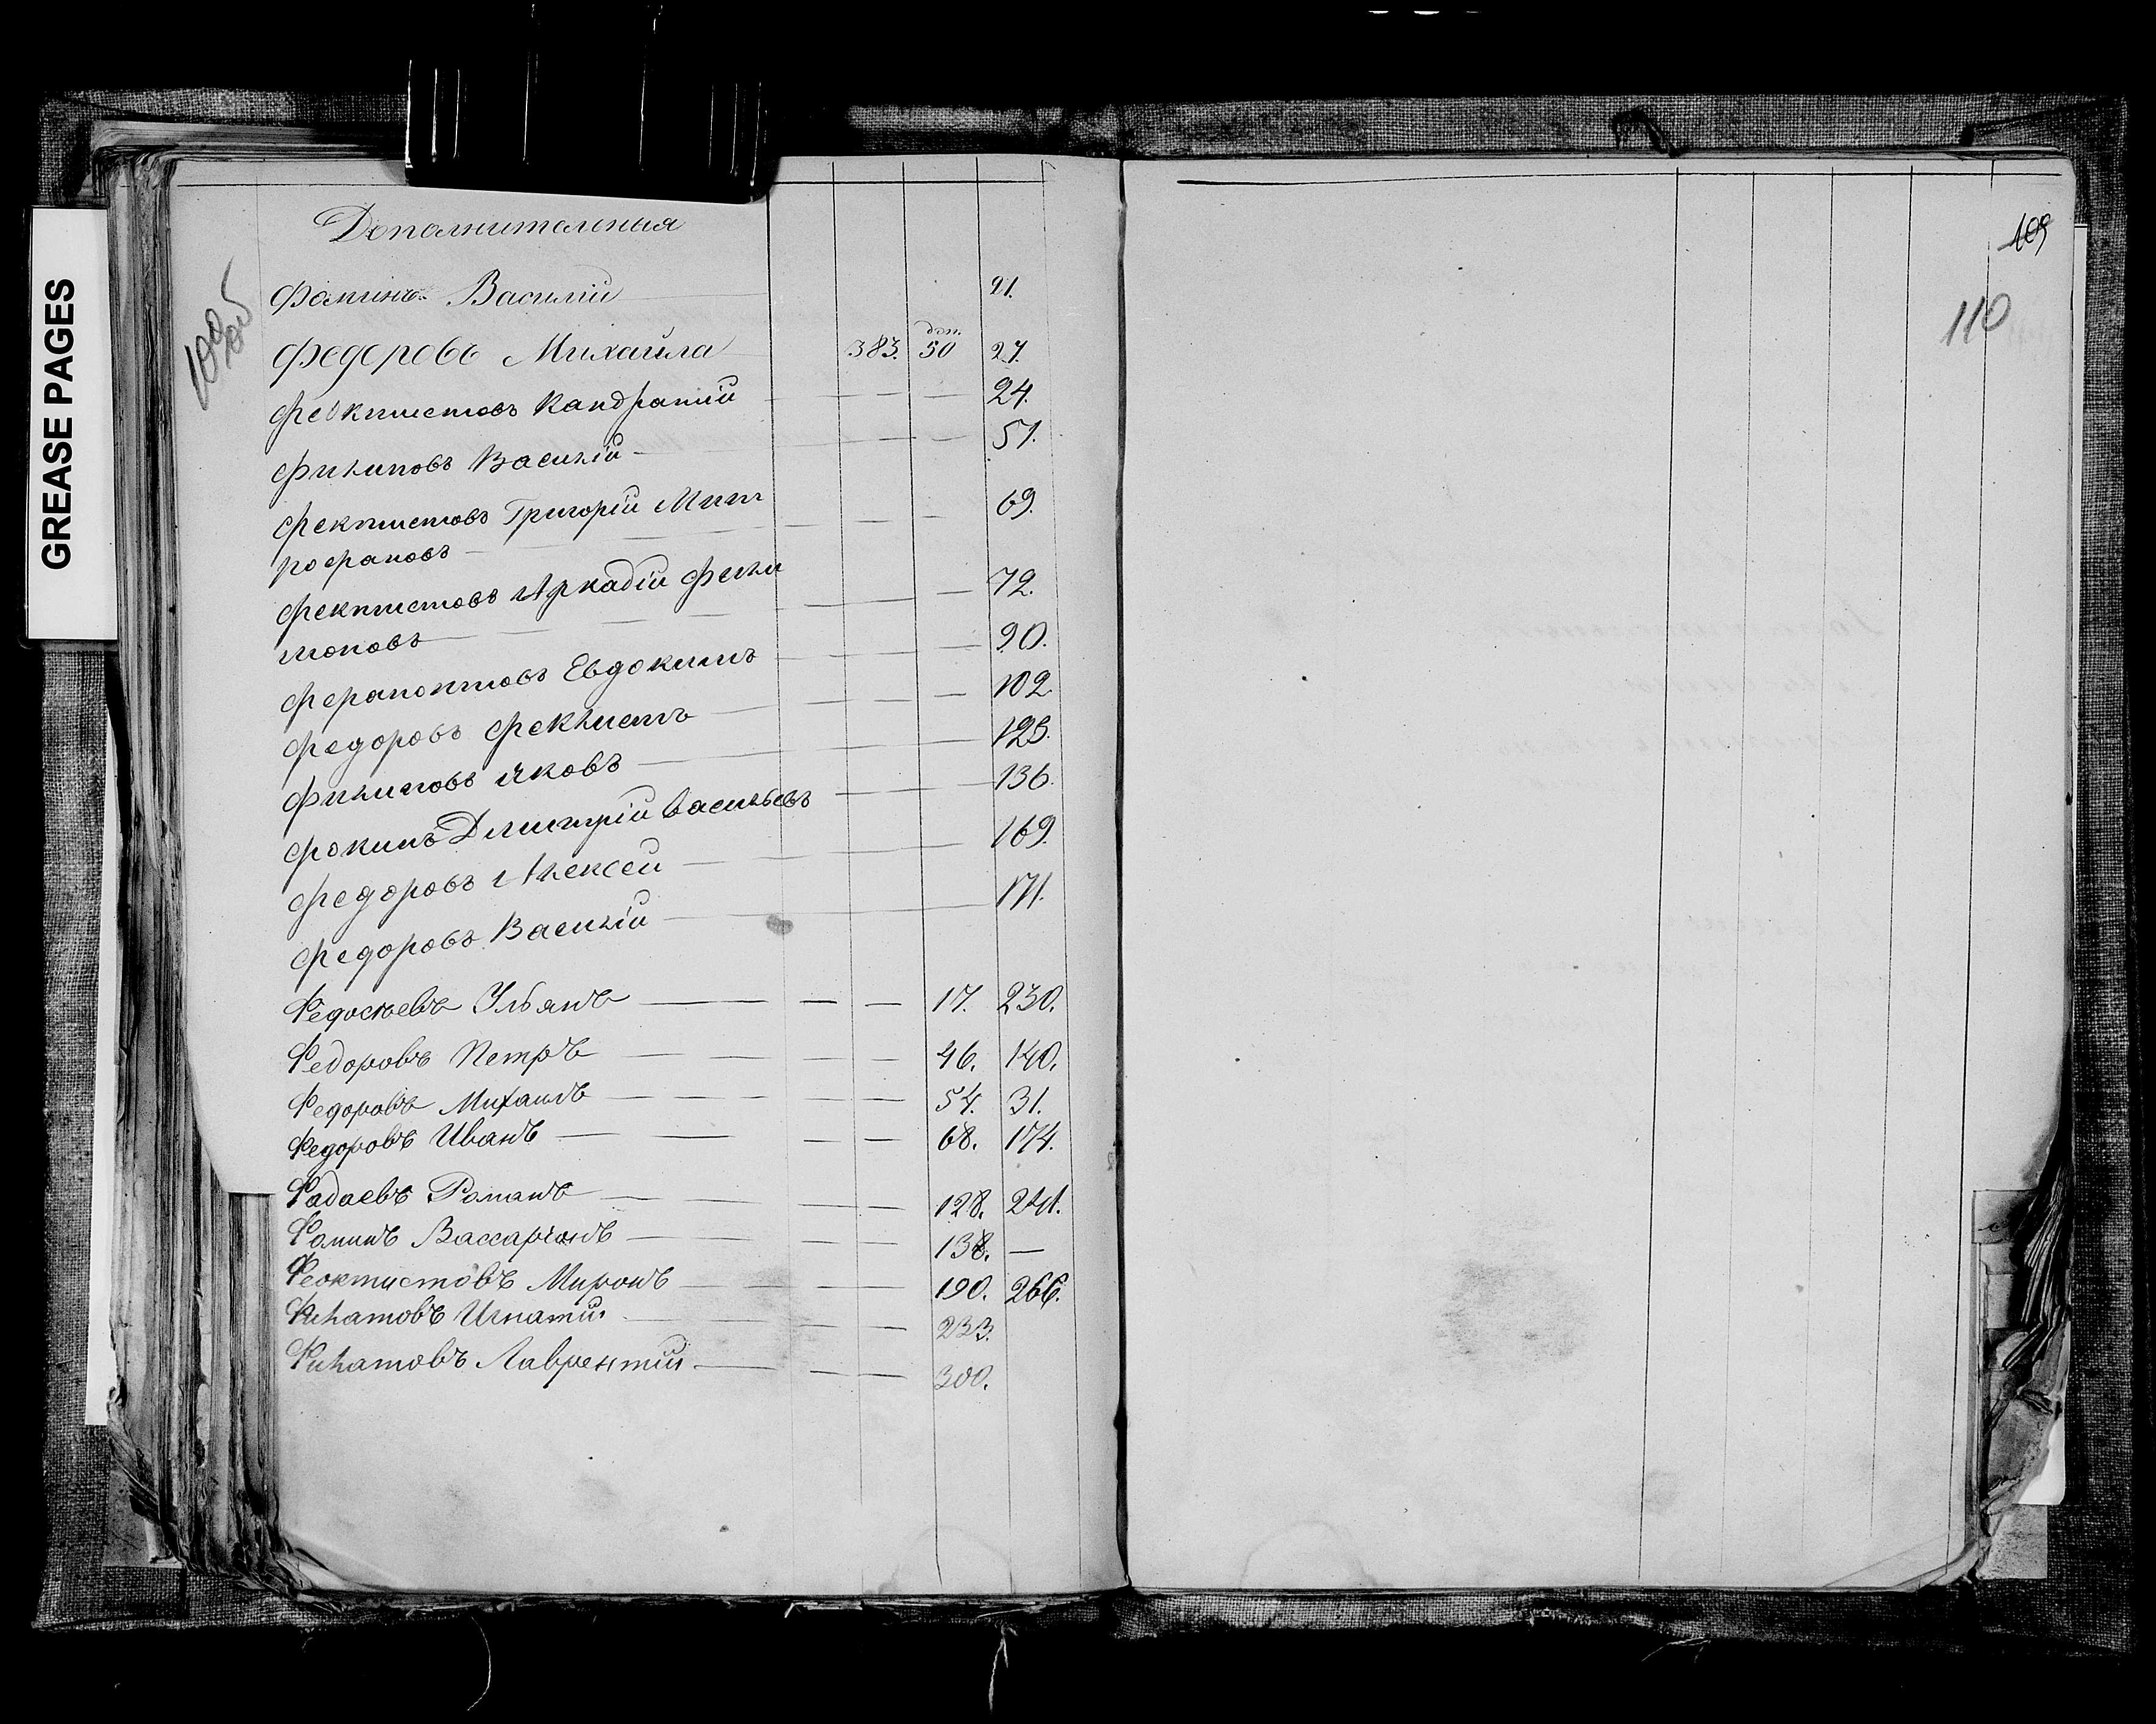 GREASE PAGES
Дополнительныя
Фоминъ Василій 21.
доп.
Федоровъ Михайла 383. 50 27.
Феоктистовъ Кандратій 24.
Филиповъ Василій 51.
Фектистовъ Григорій Мит 69.
рофановъ
Фектистовъ Аркадій Фили 72.
моновъ
Ферапонтовъ Евдокимъ 90.
Федоровъ Феклистъ 102.
Филиповъ Яковъ 123.
Фокинъ Дмитрій Васильевъ 136.
Федоровъ Алексей 169.
Федоровъ Василій 171.
Федосѣевъ Ульянъ 17. 230.
Федоровъ Петръ 46. 140.
Федоровъ Михаилъ 54. 31.
Федоровъ Иванъ 68. 174.
Фадаевъ Романъ 128. 241.
Фоминъ Вассаріонъ 138. —
Феоктистовъ Миронъ 190. 266.
Филатовъ Игнатий 233.
Филатовъ Лаврентий 300.
109
110